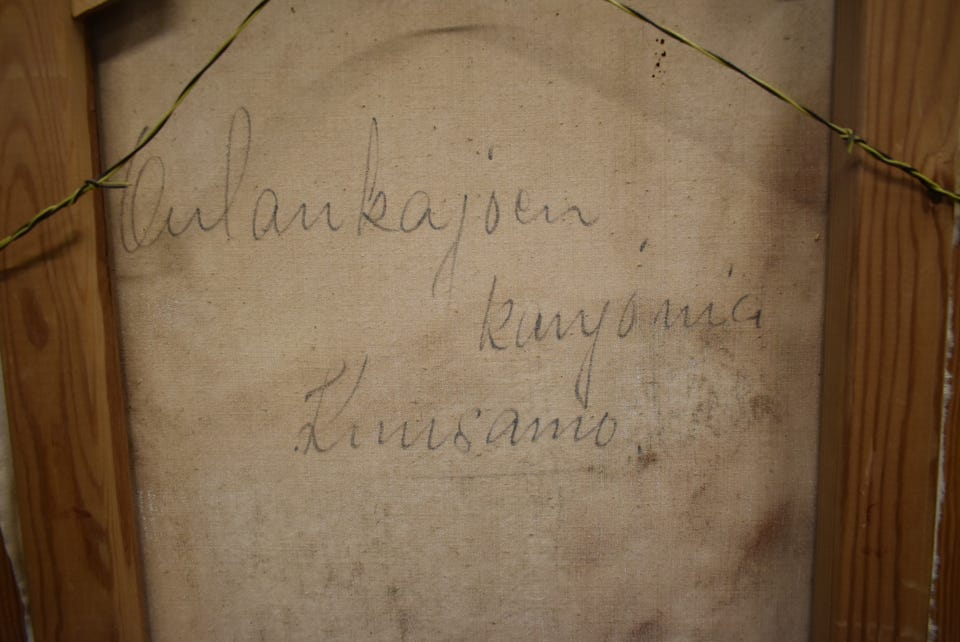 Oulankajoen
kanjonia
Kuusamo